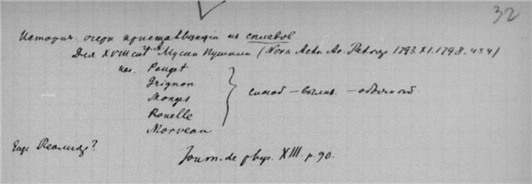 32
Историч. очерк кристаллизации из сплавов
Для XVIII ст. Мусин Пушкин (Nova Acta Ac. Petrop. 1793. XI. 1798. 454)
Pouget
Grignon
Mongez
Rouelle
Morveau
Еще Реомюр?
Journ. de phys. XIII. p. 90.